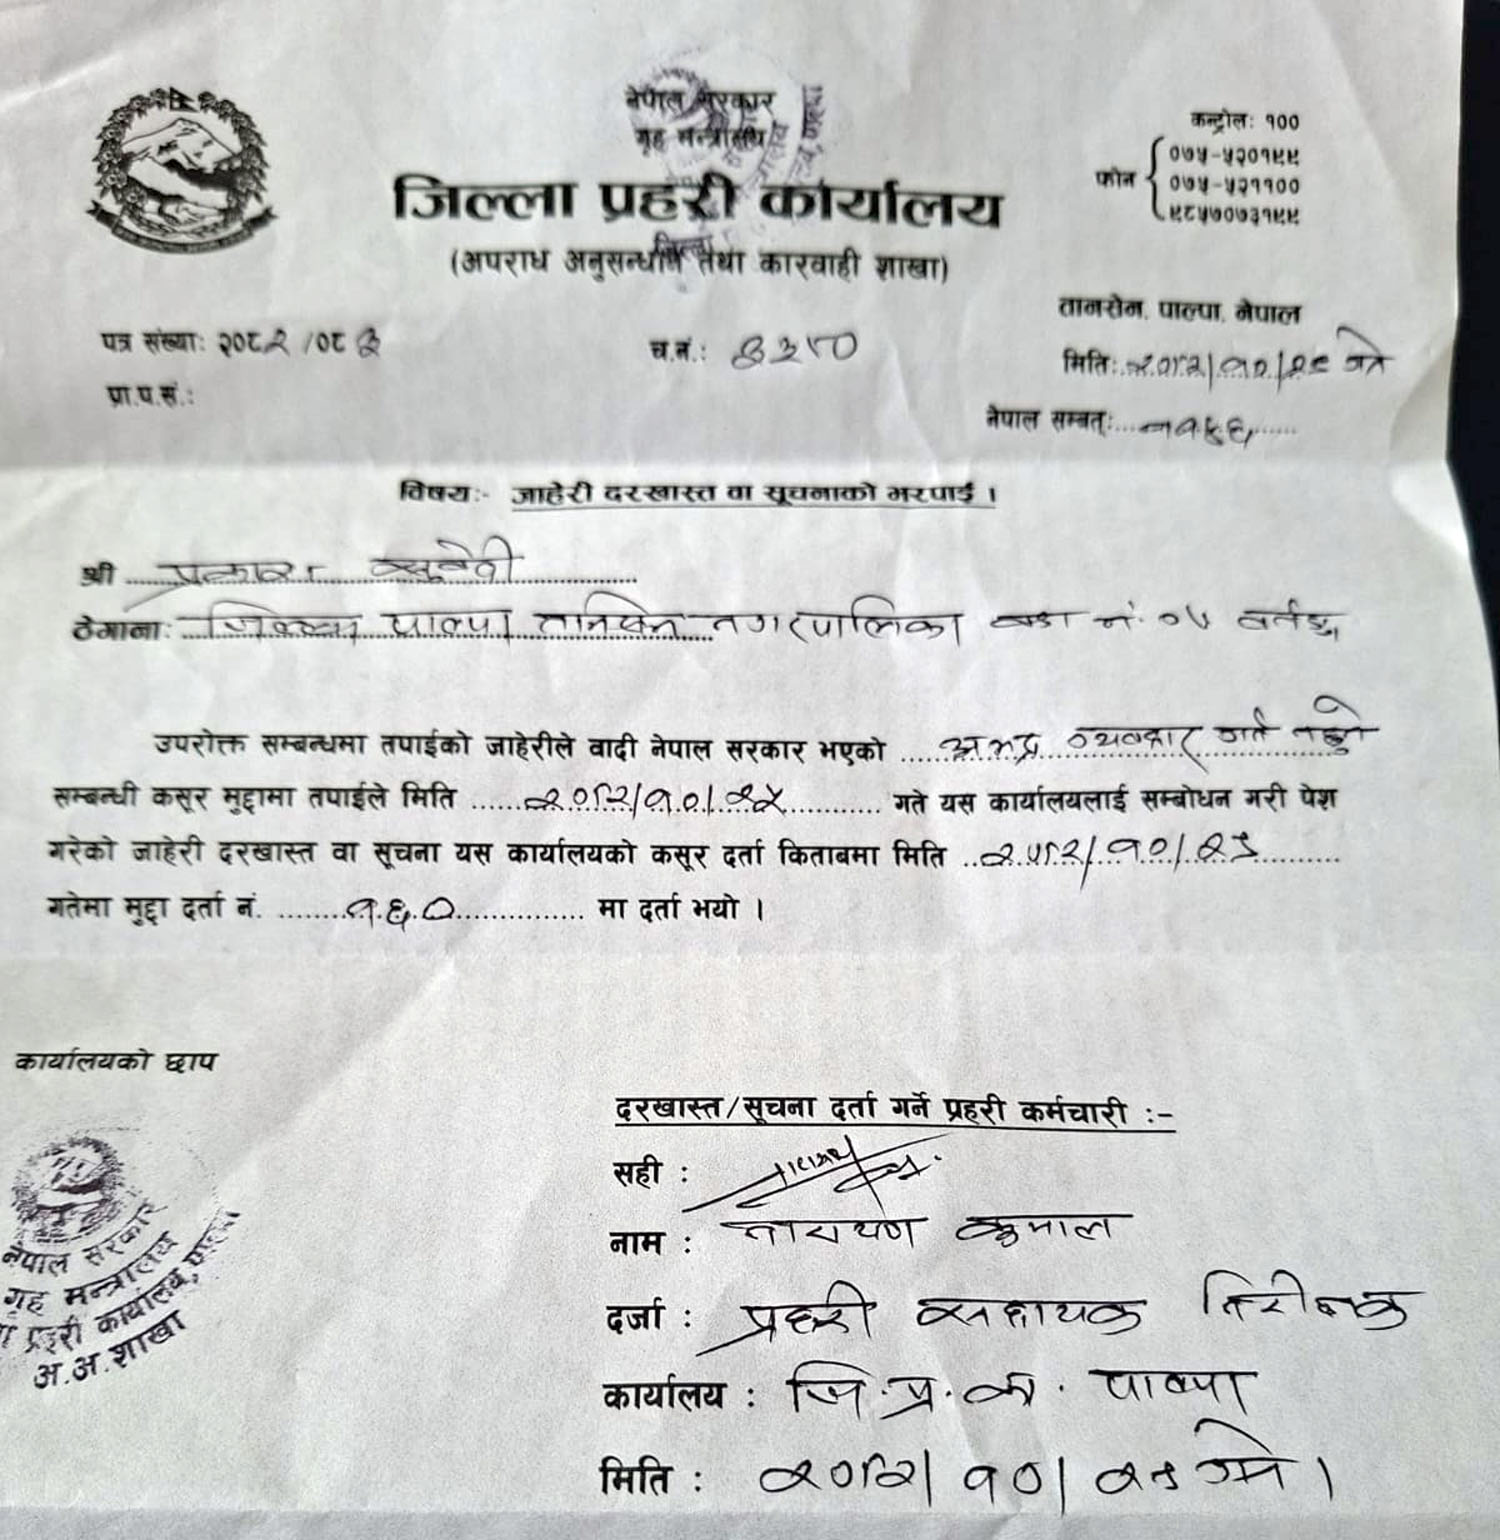 नेपाल सरकार
गृह मन्त्रालय
जिल्ला प्रहरी कार्यालय
(अपराध अनुसन्धान तथा कारवाही शाखा)
कन्ट्रोल: १००
फोन
०७५-५२०१९९
०७५-५२११००
९८५७०७३१९९
तानसेन, पाल्पा, नेपाल
पत्र संख्या: २०८२/०८३
च.नं.:
मिति: २०८२/१०/२९ गते
प्रा.प.सं.:
नेपाल सम्बत्: ११४६
विषय:- जाहेरी दरखास्त वा सूचनाको भरपाई ।
श्री प्रकाश सुवेदी
ठेगाना: जिल्ला पाल्पा तानसेन नगरपालिका वडा नं. ०५ बर्तुङ
उपरोक्त सम्बन्धमा तपाईको जाहेरीले वादी नेपाल सरकार भएको अभद्र व्यवहार गर्न नहुने
सम्बन्धी कसूर मुद्दामा तपाईले मिति २०८२/१०/२५ गते यस कार्यालयलाई सम्बोधन गरी पेश
गरेको जाहेरी दरखास्त वा सूचना यस कार्यालयको कसूर दर्ता किताबमा मिति २०८२/१०/२९
गतेमा मुद्दा दर्ता नं. १६० मा दर्ता भयो ।
कार्यालयको छाप
नेपाल सरकार
गृह मन्त्रालय
प्रहरी कार्यालय, पाल्पा
अ.अ.शाखा
दरखास्त/सूचना दर्ता गर्ने प्रहरी कर्मचारी :-
सही :
नाम : नारायण कुमाल
दर्जा : प्रहरी सहायक निरीक्षक
कार्यालय : जि.प्र.का. पाल्पा
मिति : २०८२/१०/२९ गते ।